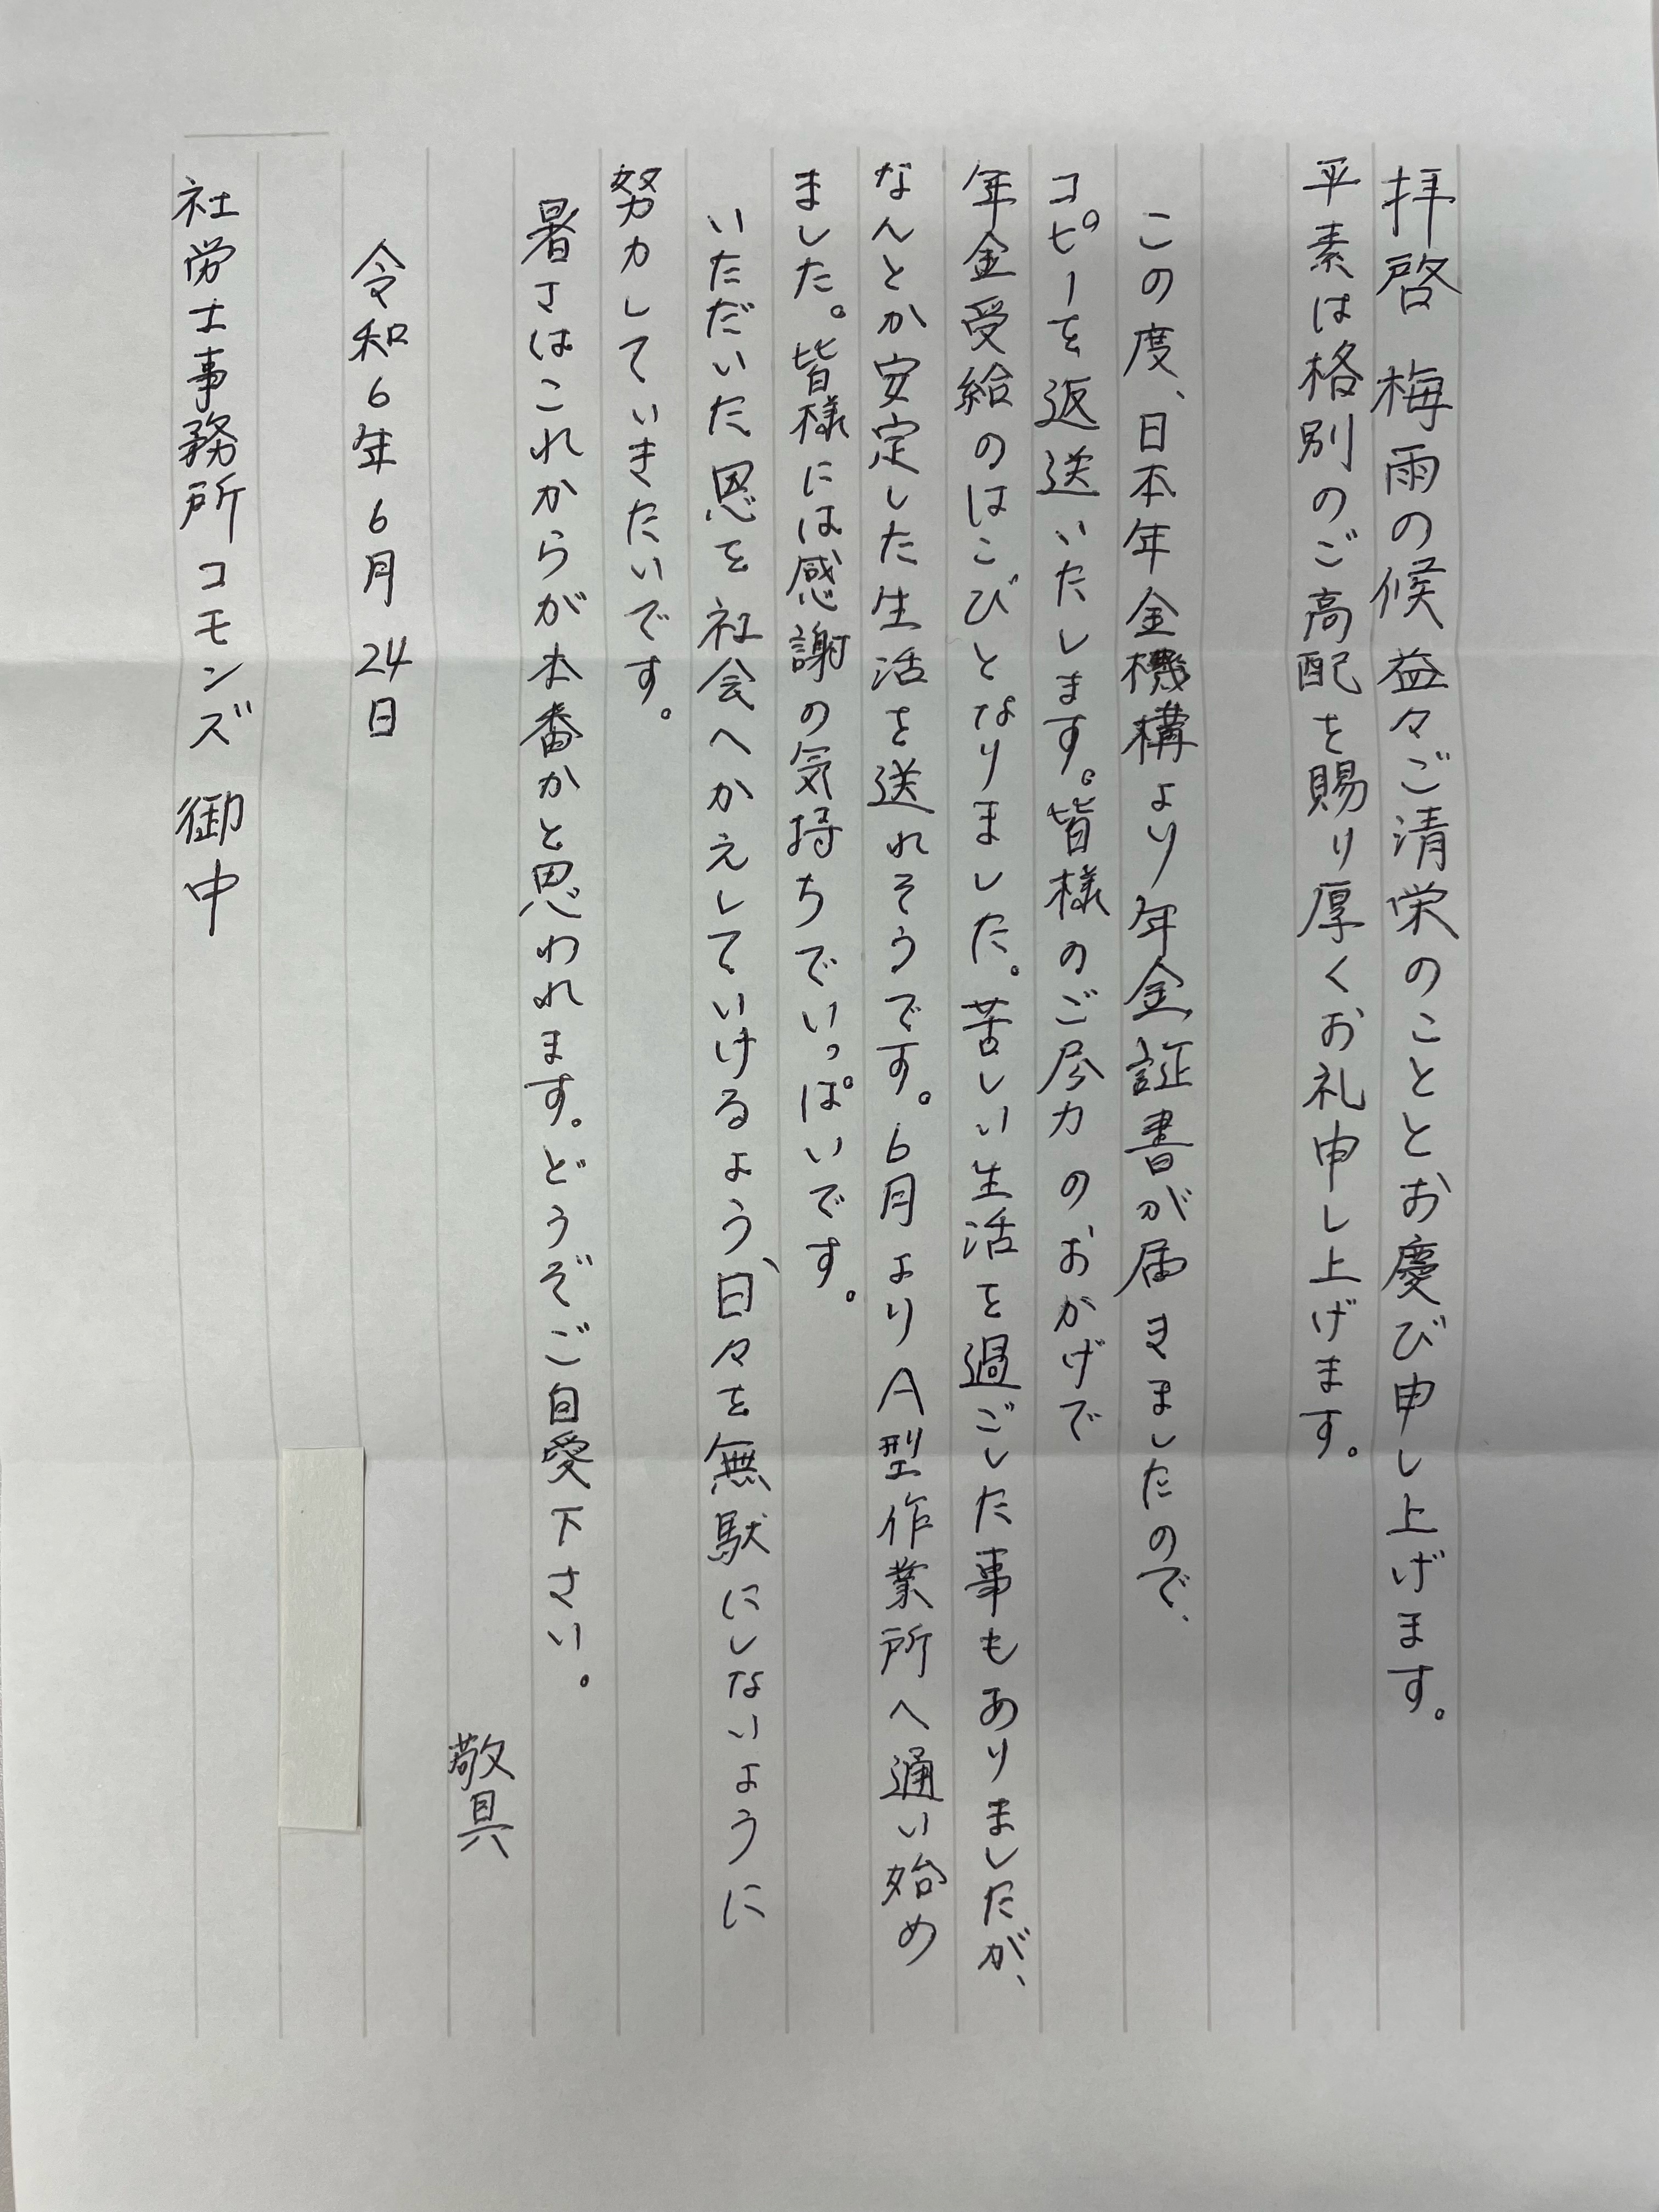 拝啓 梅雨の候益々ご清栄のこととお慶び申し上げます。
平素は格別のご高配を賜り厚くお礼申し上げます。
この度、日本年金機構より年金証書が届きましたので、
コピーを返送いたします。皆様のご尽力のおかげで
年金受給のはこびとなりました。苦しい生活を過ごした事もありましたが、
なんとか安定した生活を送れそうです。6月よりA型作業所へ通い始め
ました。皆様には感謝の気持ちでいっぱいです。
いただいた恩を社会へかえしていけるよう、日々を無駄にしないように
努力していきたいです。
暑さはこれからが本番かと思われます。どうぞご自愛下さい。
敬具
令和6年6月24日
社労士事務所コモンズ 御中